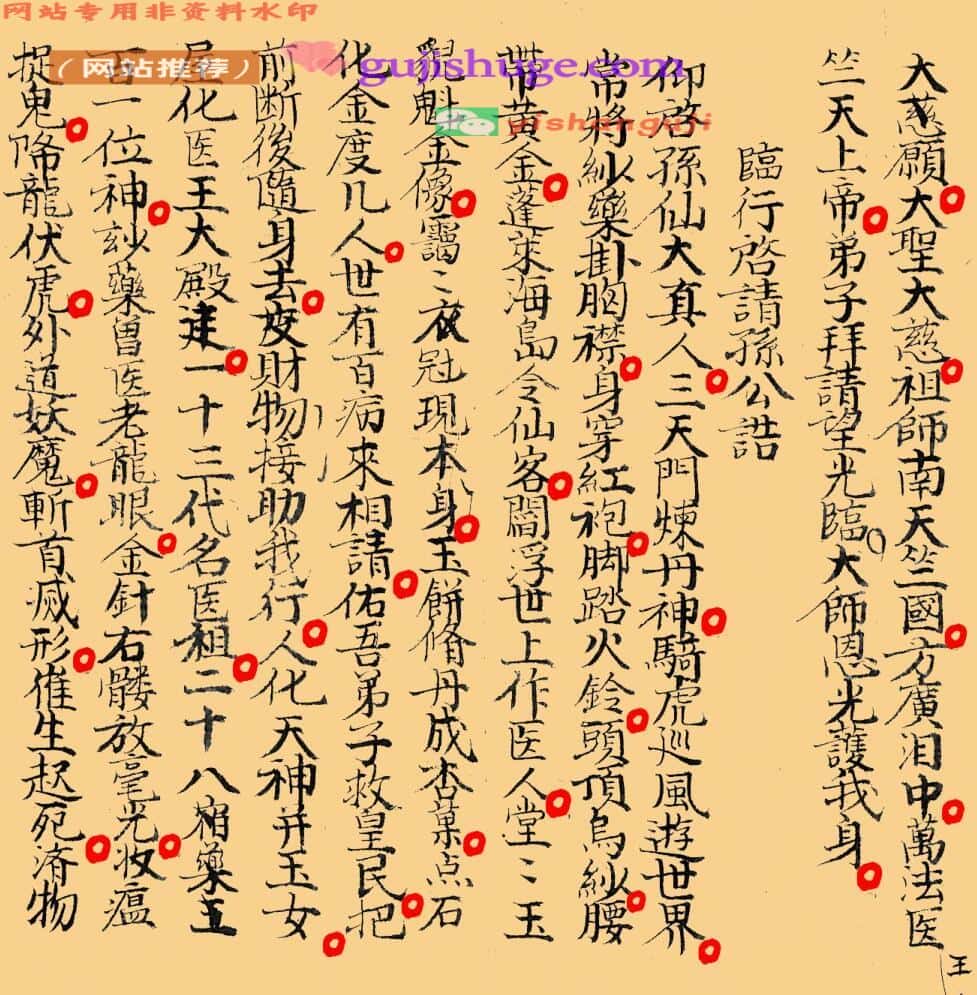 网站专用非资料水印
(网站推荐)
gujishuge.com
yishanguji
大慈願大聖大慈祖師南天竺國方廣泪中萬法医
王
竺天上帝弟子拜請望光臨大師恩光護我身
臨行啓請孫公誥
仰啓孫仙大真人三天門煉丹神騎虎巡風遊世界
常將紗藥掛胸襟身穿紅袍脚踏火鈴頭頂烏紗腰
帶黄金蓬萊海島令仙客閻浮世上作医人堂〻玉
魁金像靄〻衣冠現本身玉餅脩丹成杏菓点石
化金度凡人世有百病來相請佑吾弟子救皇民把
前断後隨身去 財物接助我行人化天神并玉女
化医王大殿 一十三代名医祖二十八 藥王
百一位神玅藥曽医老龍眼金針右髏放毫光妆瘟
捉鬼降龍伏虎外道妖魔斬首滅形催生起死済物